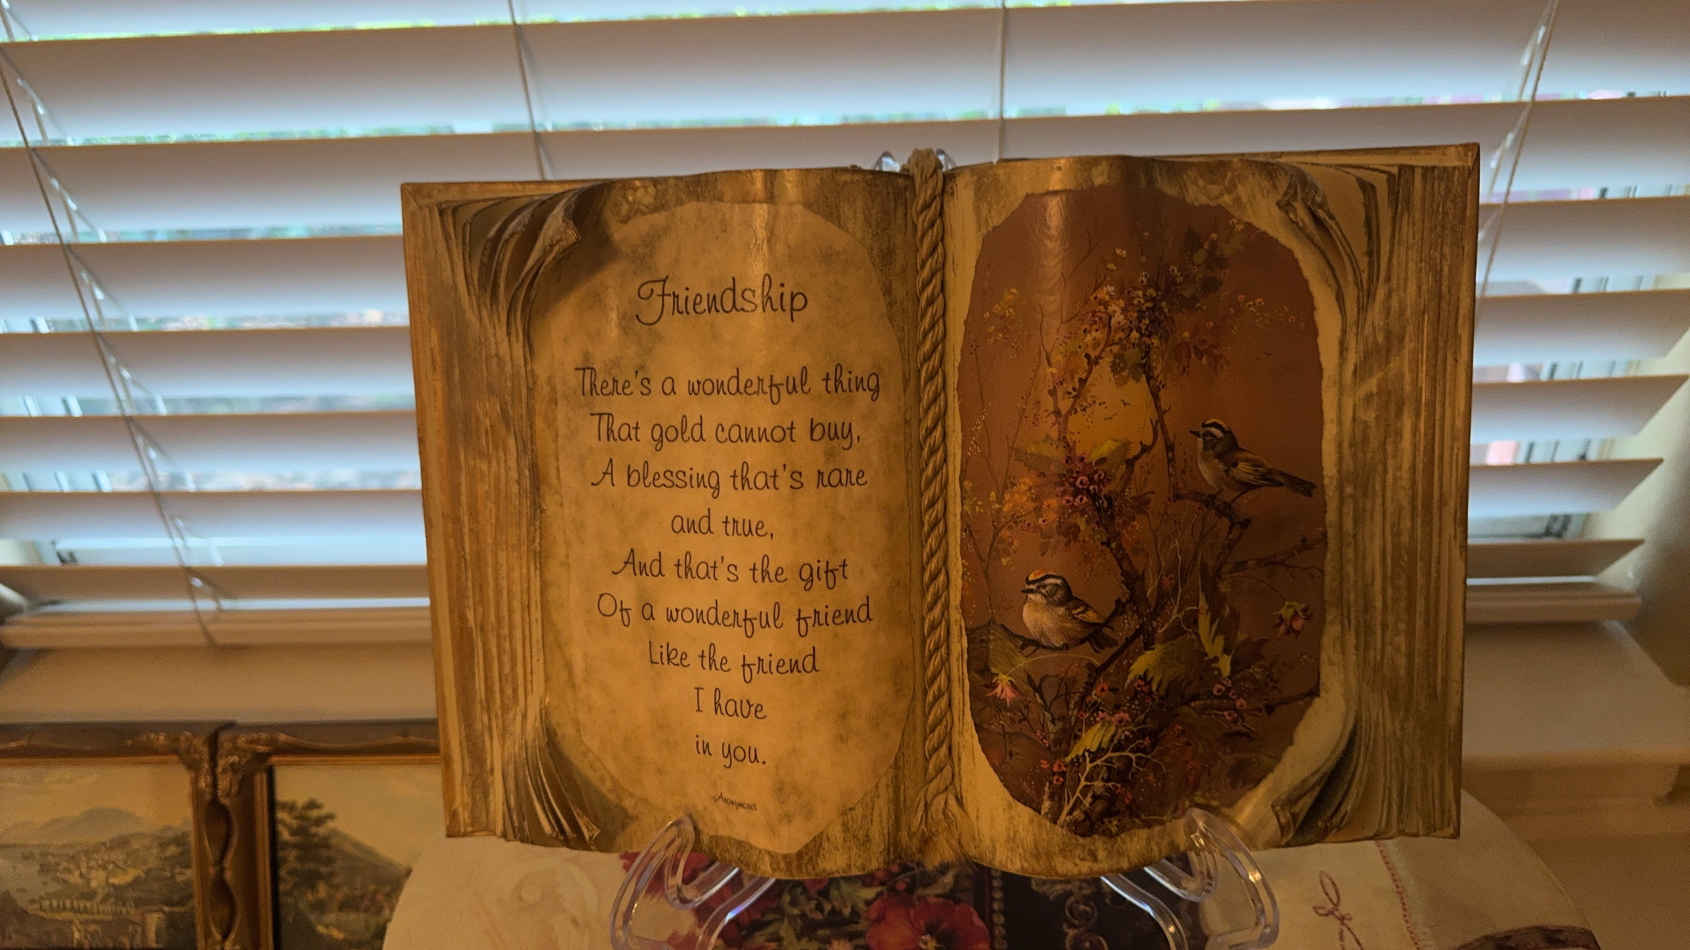 Friendship
There's a wonderful thing
That gold cannot buy,
A blessing that's rare
and true,
And that's the gift
Of a wonderful friend
Like the friend
I have
in you.
Anonymous